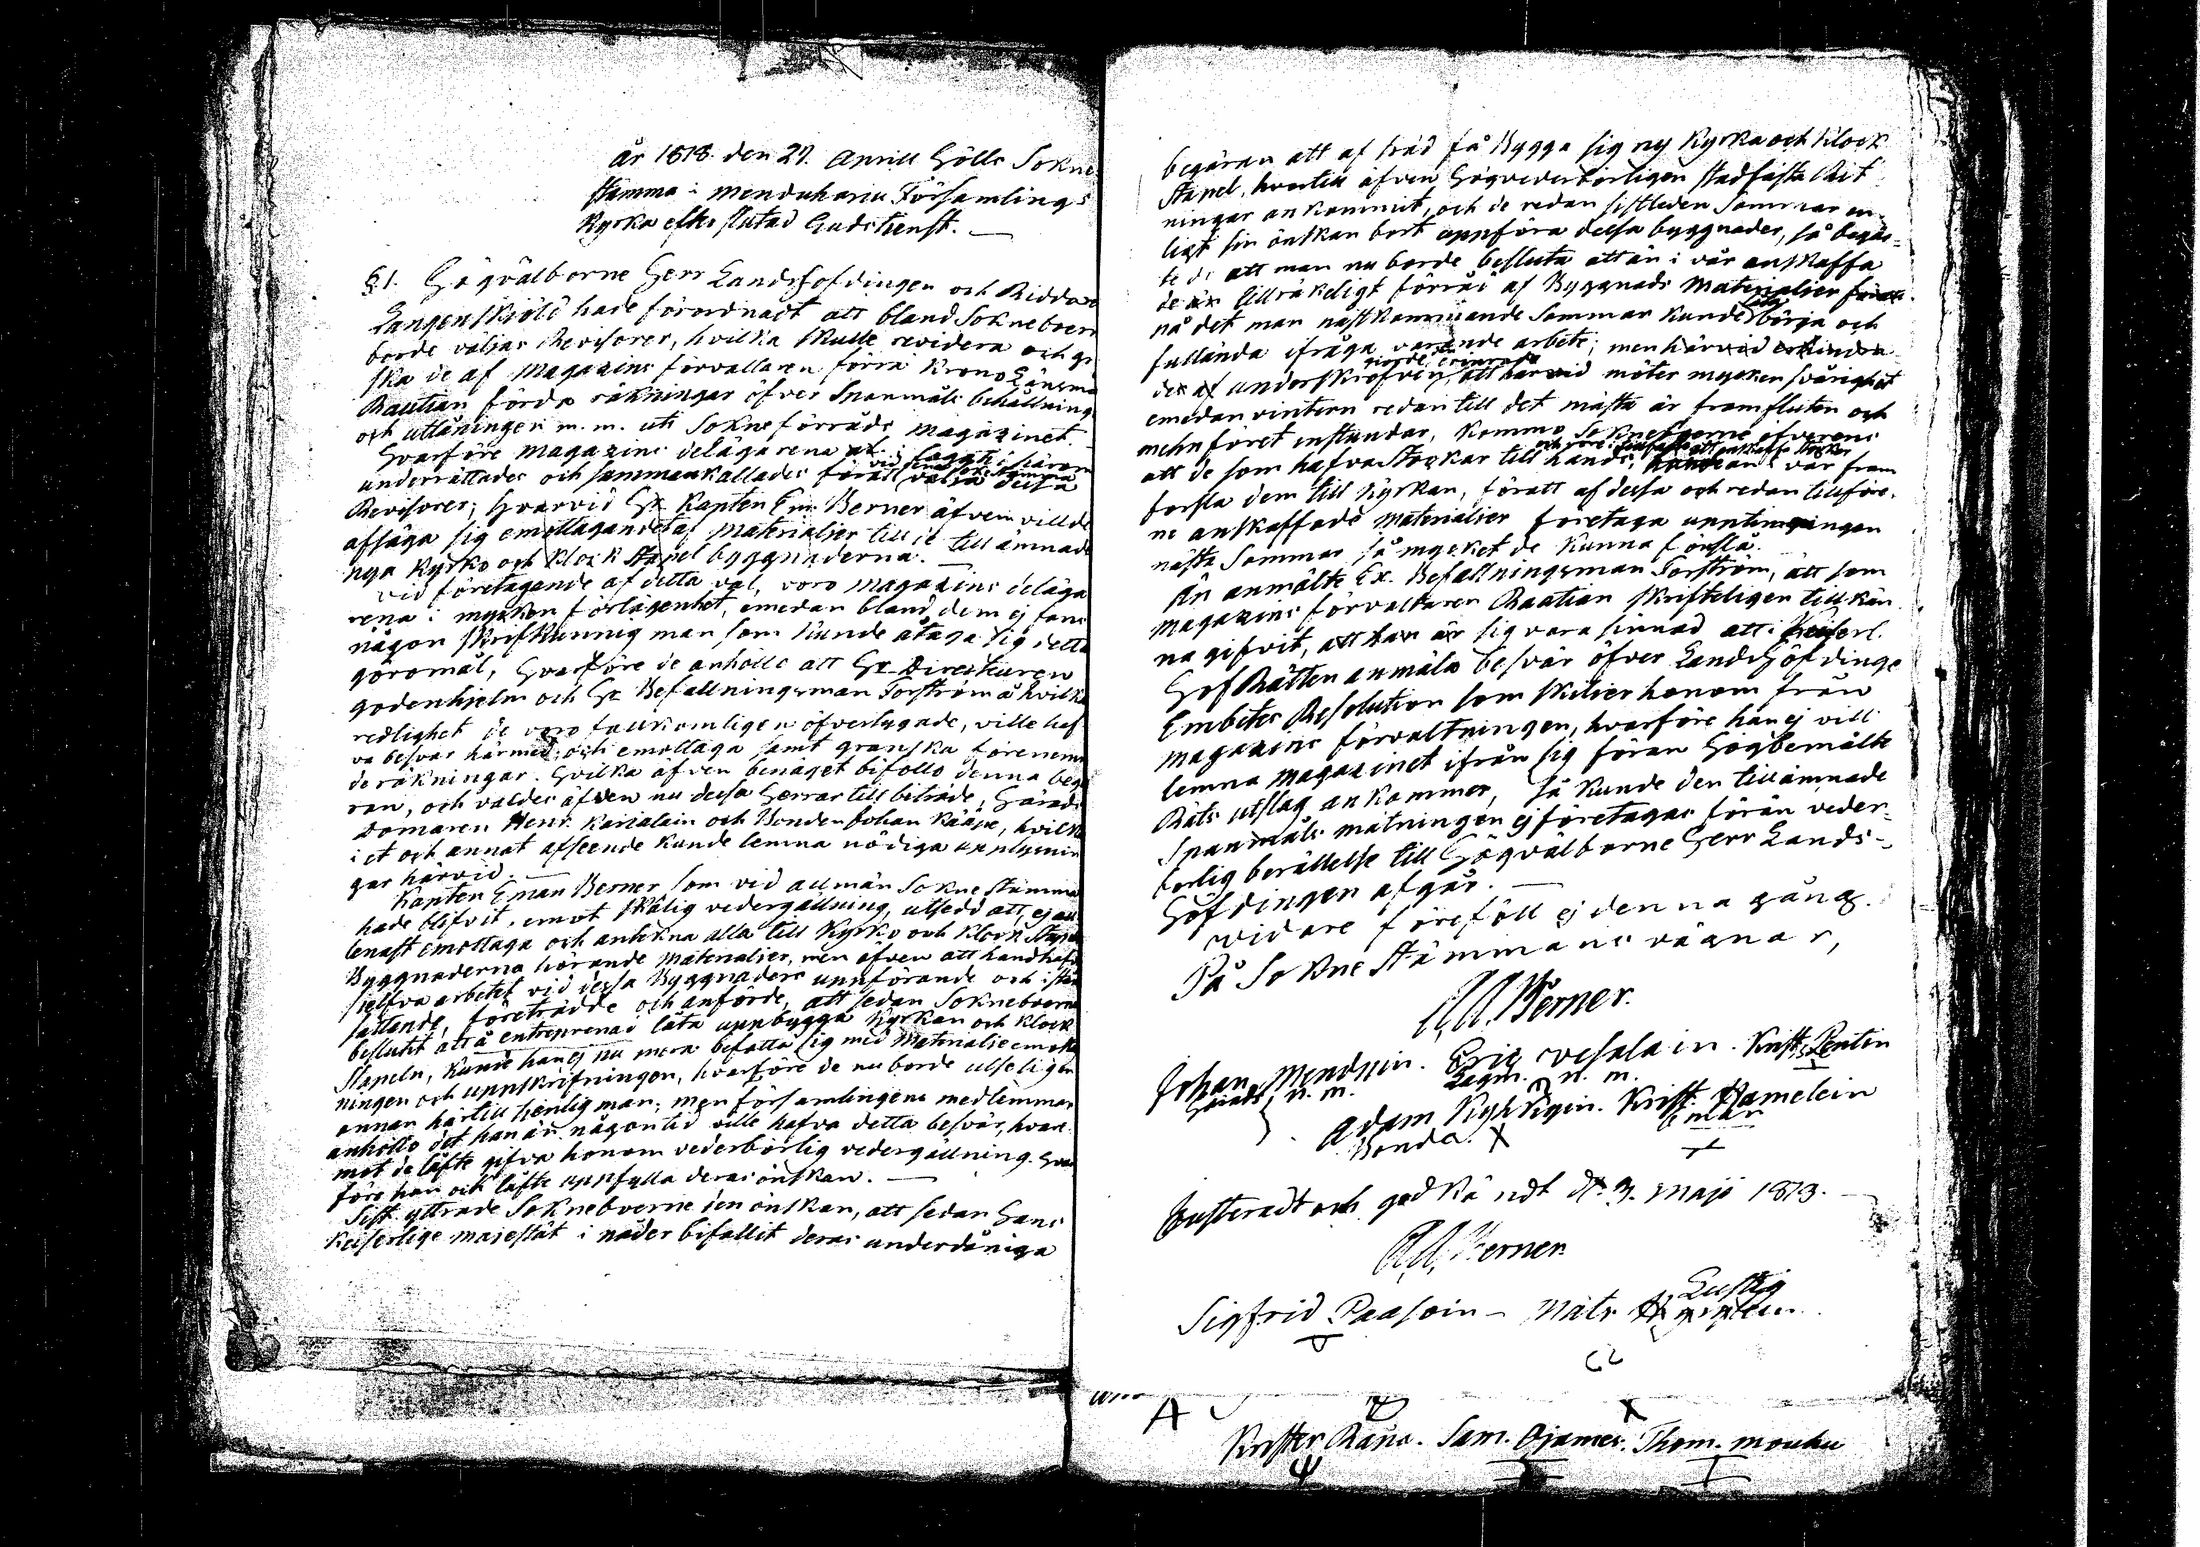 år 1818. den 27. Aprill Hölls Sokne
stämma i Menduharju Församlings
Kyrka efter slutad Gudstienst. —
§1. Högvälborne Herr Landshöfdingen och Riddaren
Langenskiöld hade förordnadt att bland Sokneboern
borde väljas Revisorer, hvilka skulle revidera och gr
ska de af Magazins förvaltaren förra Krono Länsma
Rautian förda räkningar öfver Spanmåls behållning
och utlåningen m. m. uti Sokneförråds Magazinet.
Hvarföre Magazins delägarena
underrättades och sammankallades för att välja dessa
Revisorer; Hvarvid Hr Kapten Em. Berner äfven villde
afsäga sig emottagandet af Materialier till de tillämnade
nya Kyrko och Klockstapel byggnaderna. —
vid företagende af detta val, voro Magazins deläga
rena i mycken förlägenhet, emedan bland dem ej fans
någon skrifkunnig man som kunde åtaga sig detta
göromål, Hvarföre de anhöllo att Hr Directeuren
Godenhjelm och Hr Befallningsman Forström å hvilkas
redlighet de voro fullkomligen öfvertygade, ville haf
va besvär härmed och emottaga samt granska förenemn
de räkningar. Hvilka äfven benäget biföllo denna begä
ran, och valdes äfven nu dessa Herrar till biträde, Härads
Domaren Henr. Karialain och Bonden Johan Kääpe, hvilka
i et och annat afseende kunde lemna nödiga upplysnin
gar härvid. —
Kapten Eman Berner som vid allmän Sokne stämma
hade blifvit, emot skälig vedergällning, utsedd att ej al
lenast emottaga och antekna alla till Kyrko och Klock Stapel
Byggnaderna hörande Materialier, men äfven att handhafva
sielfva arbetet vid dessa Byggnaders uppförande och i stånd
sättande, företrädde och anförde, att sedan Sokneboerne
beslutit att å entreprenad låta uppbygga Kyrkan och Klock
Stapeln, kunde han ej nu mera befatta sig med Materialie emotta
ningen och uppskrifningen, hvarföre de nu borde utse någon
annan härtill tienlig man; men församlingens medlemmar
anhöllo det han än någon tid ville hafva detta besvär, hvar
mot de läfte gifva honom vederbörlig vedergällning. Hvar
före han och läfte uppfylla deras önskan. —
Sist yttrade Sokneboerne den önskan, att sedan Hans
Keiserlige Majestät i nåder bifallit deras underdåniga
begäran att af träd få Bygga sig ny Kyrka och Klock
Stapel, hvartill äfven Högvederbörligen stadfästa Rit
ningar ankommit, och de redan sistleden Sommar en-
ligt sin önskan bort uppföra dessa byggnader, så begär-
te de att man nu borde besluta att än i vår anskaffa
de än tillräckeligt förråd af Byggnads Materialier
på det man nästkommande Sommar kunde låta börja och
fullända ifråga varande arbete; men
af underskrifven giordes erinran att härvid möter mycken svårighet
emedan vintern redan till det mästa är framfluten och
mehnföret instundar, kommo Sokneboerne öfverens
att de som hafva Stockar till hands, än i vår fram
forsla dem till Kyrkan, föratt af dessa och redan tillföre-
ne anskaffade Materialier företaga upptimringen
nästa Sommar så mycket de kunna förslå.
Än anmälte Hr. Befallningsman Forström, att som
Magazins förvaltaren Raatian skrifteligen tillkän
na gifvit, att han är sig vara sinnad att i Keiserl.
Hof Rätten anmäla besvär öfver Landshöfdinge
Embetes Resolution som skilier honom från
Magazins förvaltningen, hvarföre han ej vill
lemna Magazinet ifrån sig föran Högbemälte
Räts utslag ankommer, så kunde den tillämnade
Spanmåls mätningen ej företagas förän veder-
börlig berättelse till Högvälborne Herr Lands-
Höfdingen afgår. —
vidare föreföll ej denna gång.
På Soknestämmans vägnar,
A. A. Berner.
Johan Mendyin. Eric Vesalain. Krist. Pentin
Härads n. m. Legm. n. m.
Adam Kyhkyin. Krist. Hämelein
Bonda. X
Justeradt och godkändt d. 3. Maji 1813.
A. A. Berner
Sigfrid Paasoin — Mats Lustig
A
Krister Räno. Sam. Ojames. Thom. Mouhu